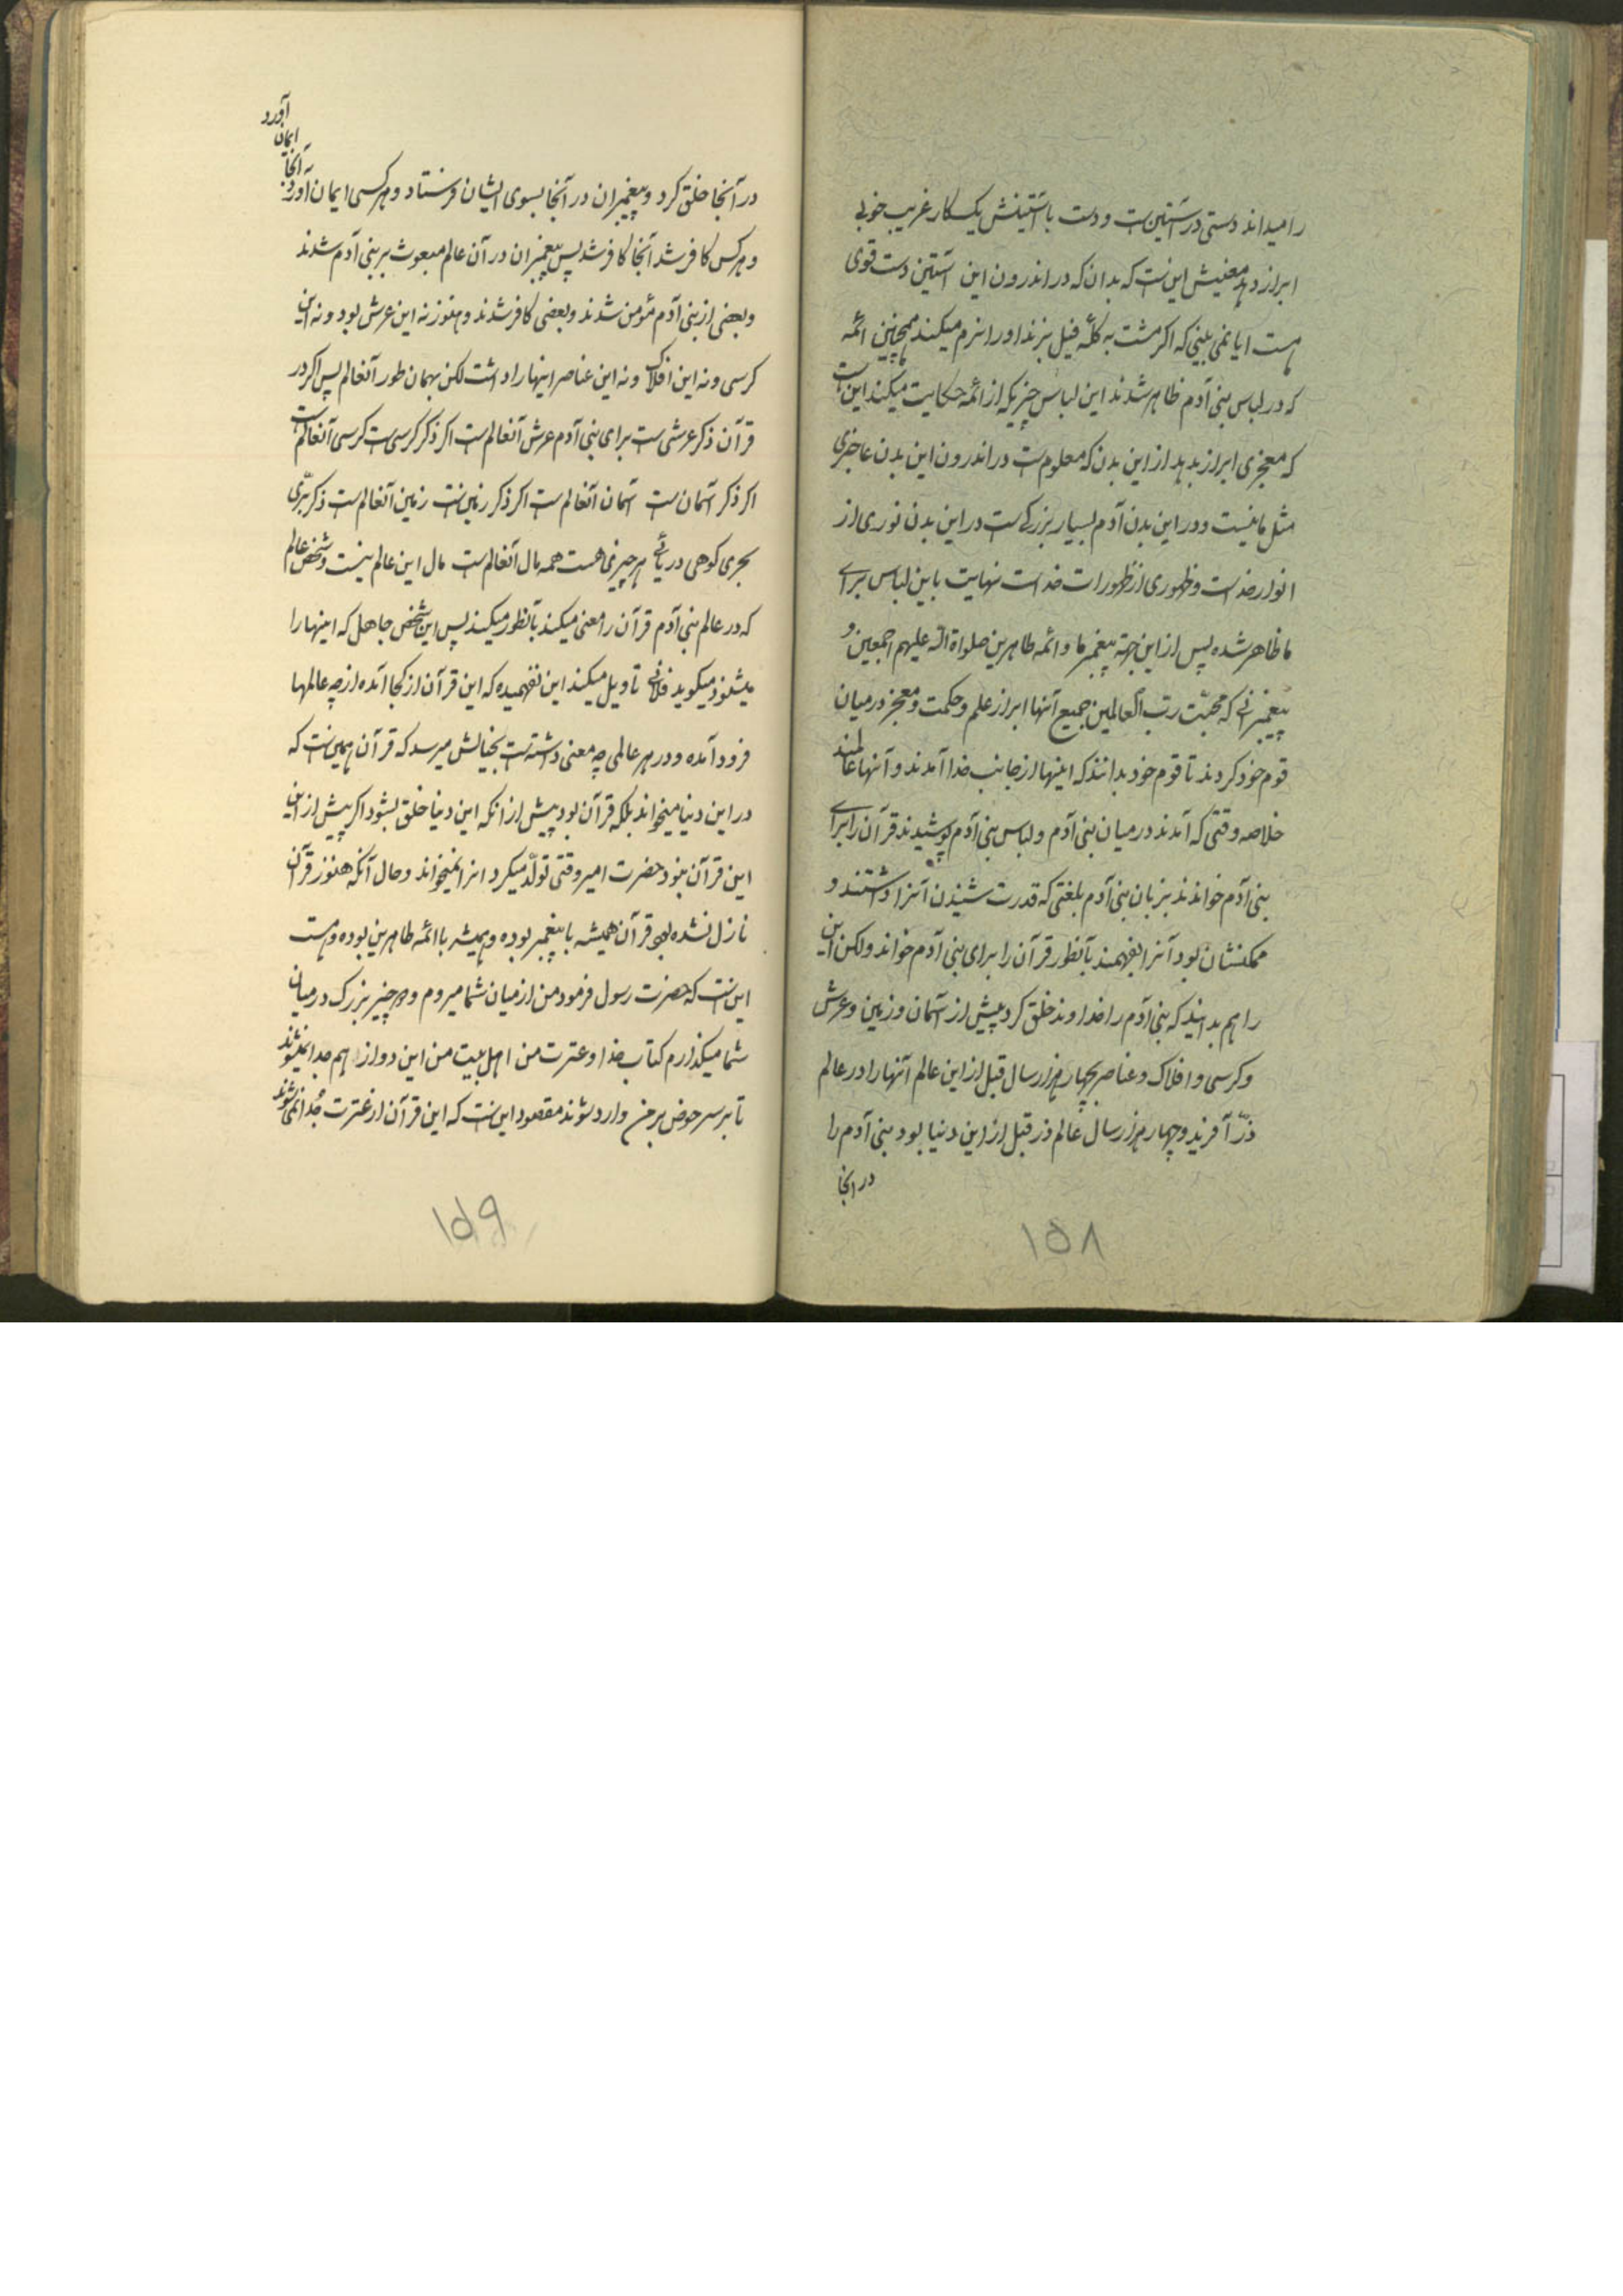 را میداند دستی در آستین است و دست با آستینش یک کار غریب خوبی
ابراز دهد معنیش این است که بدان که در اندرون این آستین دست قوی
هست ایا نمی بینی که اکر مشت به کلّه فیل بزند او را نرم میکند همچنین ائمه
که در لباس بنی آدم ظاهر شدند این لباس چیزیکه از ائمه حکایت میکند این است
که معجزی ابراز بدهد از این بدن که معلوم است در اندرون این بدن عاجزی
مثل ما نیست و در این بدن آدم بسیار بزرکی است در این بدن نوری از
انوار خداست و ظهوری از ظهورات خداست نهایت باین لباس برای
ما ظاهر شده پس از این جهة پیغمبر ما و ائمه طاهرین صلواة اللّه علیهم اجمعین و
پیغمبرانی که محبّت ربّ العالمین جمیع آنها ابراز علم و حکمت و معجز در میان
قوم خود کردند تا قوم خود بدانند که اینها از جانب خدا آمدند و آنها عالمند
خلاصه وقتی که آمدند در میان بنی آدم و لباس بنی آدم پوشیدند قرآن را برای
بنی آدم خواندند بزبان بنی آدم بلغتی که قدرت شنیدن آنرا داشتند و
ممکنشان بود آنرا بفهمند بآنطور قرآن را برای بنی آدم خواند ولکن این
را هم بدانید که بنی آدم را خداوند خلق کرد پیش از آسمان و زمین و عرش
و کرسی و افلاک و عناصر بچهار هزار سال قبل از این عالم آنها را در عالم
ذرّ آفرید و چهار هزار سال عالم ذر قبل از این دنیا بود بنی آدم را
در انجا
۱۵۸
در آنجا خلق کرد و پیغمبران در آنجا بسوی ایشان فرستاد و هرکسی ایمان آورد
به آنجا
ایمان
آورد
و هرکس کافر شد آنجا کافر شد پس پیغمبران در آن عالم مبعوث بر بنی آدم شدند
و بعضی از بنی آدم مؤمن شدند و بعضی کافر شدند و هنوز نه این عرش بود و نه این
کرسی و نه این افلاک و نه این عناصر اینها را داشت لکن بهمان طور آنعالم پس اکر در
قرآن ذکر عرشی است برای بنی آدم عرش آنعالم است اکر ذکر کرسی است کرسی آنعالم است
اکر ذکر آسمان است آسمان آنعالم است اکر ذکر زمین است زمین آنعالم است ذکر برّی
بحری کوهی دریائی هر چیزی هست همه مال آنعالم است مال این عالم نیست و شخص عالم
که در عالم بنی آدم قرآن را معنی میکند بآنطور میکند پس این شخص جاهل که اینها را
میشنود میکوید فلانی تاویل میکند این نفهمیده که این قرآن از کجا آمده از چه عالمها
فرود آمده و در هر عالمی چه معنی داشته است بخیالش میرسد که قرآن همین است که
در این دنیا میخواند بلکه قرآن بود پیش از آنکه این دنیا خلق بشود اکر پیش از این
این قرآن نبود حضرت امیر وقتی تولّد میکرد انرا نمیخواند و حال آنکه هنوز قرآن
نازل نشده بود قرآن همیشه با پیغمبر بوده و همیشه با ائمه طاهرین بوده و هست
این است که حضرت رسول فرمود من از میان شما میروم و دو چیز بزرک در میان
شما میکذارم کتاب خدا و عترت من اهل بیت من این دو از هم جدا نمیشوند
تا بر سر حوض بر من وارد شوند مقصود این است که این قرآن از عترت جُدا نمی شوند
۱۵۹